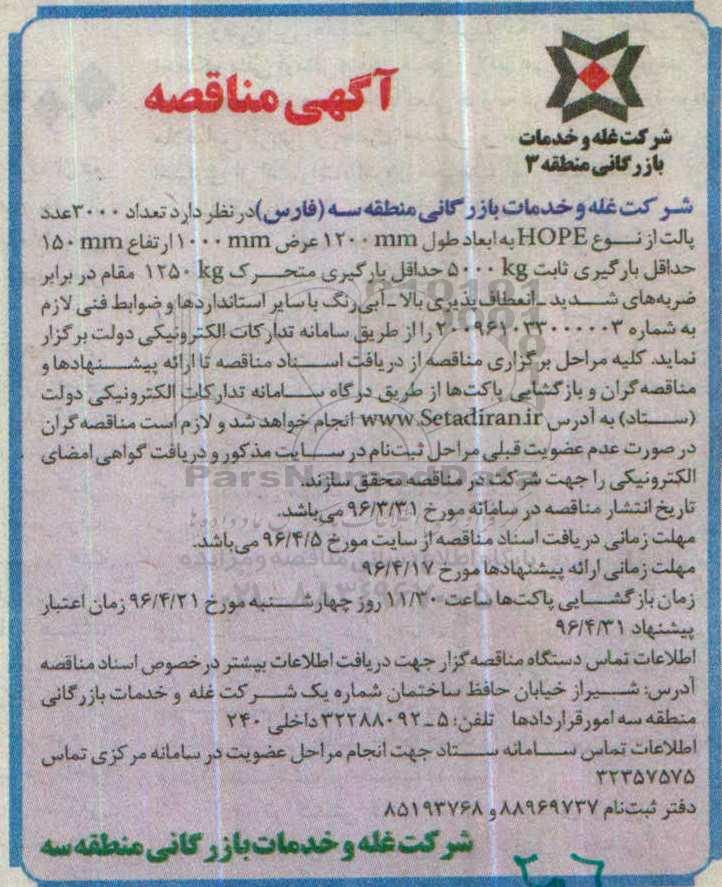 شرکت غله و خدمات
بازرگانی منطقه ۳
آگهی مناقصه
شرکت غله و خدمات بازرگانی منطقه سه (فارس) در نظر دارد تعداد ۳۰۰۰ عدد
پالت از نوع HOPE به ابعاد طول ۱۲۰۰ mm عرض ۱۰۰۰ mm ارتفاع ۱۵۰ mm
حداقل بارگیری ثابت ۵۰۰۰ kg حداقل بارگیری متحرک ۱۲۵۰ kg مقام در برابر
ضربه‌های شدید ـ انعطاف‌پذیری بالا ـ آبی‌رنگ با سایر استانداردها و ضوابط فنی لازم
به شماره ۲۰۰۹۶۱۰۳۳۰۰۰۰۰۳ را از طریق سامانه تدارکات الکترونیکی دولت برگزار
نماید. کلیه مراحل برگزاری مناقصه از دریافت اسناد مناقصه تا ارائه پیشنهادها و
مناقصه‌گران و بازگشایی پاکت‌ها از طریق درگاه سامانه تدارکات الکترونیکی دولت
(ستاد) به آدرس www.Setadiran.ir انجام خواهد شد و لازم است مناقصه‌گران
در صورت عدم عضویت قبلی مراحل ثبت‌نام در سایت مذکور و دریافت گواهی امضای
الکترونیکی را جهت شرکت در مناقصه محقق سازند.
ParsNamadData
تاریخ انتشار مناقصه در سامانه مورخ ۹۶/۳/۳۱ می‌باشد.
مهلت زمانی دریافت اسناد مناقصه از سایت مورخ ۹۶/۴/۵ می‌باشد.
مهلت زمانی ارائه پیشنهادها مورخ ۹۶/۴/۱۷
زمان بازگشایی پاکت‌ها ساعت ۱۱/۳۰ روز چهارشنبه مورخ ۹۶/۴/۲۱ زمان اعتبار
پیشنهاد ۹۶/۴/۳۱
اطلاعات تماس دستگاه مناقصه‌گزار جهت دریافت اطلاعات بیشتر در خصوص اسناد مناقصه
آدرس: شیراز خیابان حافظ ساختمان شماره یک شرکت غله و خدمات بازرگانی
منطقه سه امور قراردادها تلفن: ۵ ـ ۳۲۲۸۸۰۹۲ داخلی ۲۴۰
اطلاعات تماس سامانه ستاد جهت انجام مراحل عضویت در سامانه مرکزی تماس
۳۲۳۵۷۵۷۵
دفتر ثبت‌نام ۸۸۹۶۹۷۳۷ و ۸۵۱۹۳۷۶۸
شرکت غله و خدمات بازرگانی منطقه سه